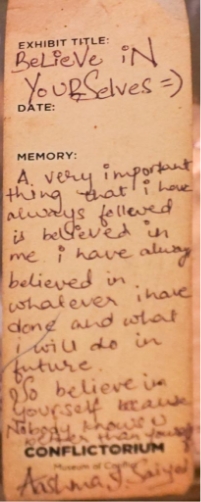 EXHIBIT TITLE:
BeLieVe iN
YOURSelves =)
DATE:
MEMORY:
A very important
thing that i have
always followed
is believed in
me. i have alway
believed in
whatever i have
done and what
i will do in
future.
So believe in
yourself because
Nobody knows U
better than yourself
CONFLICTORIUM
Museum of